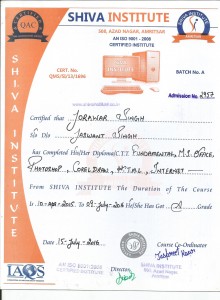 SHIVA INSTITUTE
388, AZAD NAGAR, AMRITSAR
AN ISO 9001 - 2008
CERTIFIED INSTITUTE
QAC
CERT. NO.
BATCH No. A
Admission No. 1957
SHIVA INSTITUTE
Certified that Jorawar Singh
S/o Jaswant Singh
has Completed His/Her Diploma CTT FUNDAMENTAL, M.S. OFFICE,
PHOTOSHOP, CORELDRAW, HTML, INTERNET
From SHIVA INSTITUTE The Duration of The Course
10-Apr-2015 to 09-July-2016 He/She Has Got Grade
Date 15-July-2016
Course Co-ordinator
Director
IAQS
AN ISO 9001:2008
CERTIFIED INSTITUTE
SHIVA INSTITUTE
Amritsar